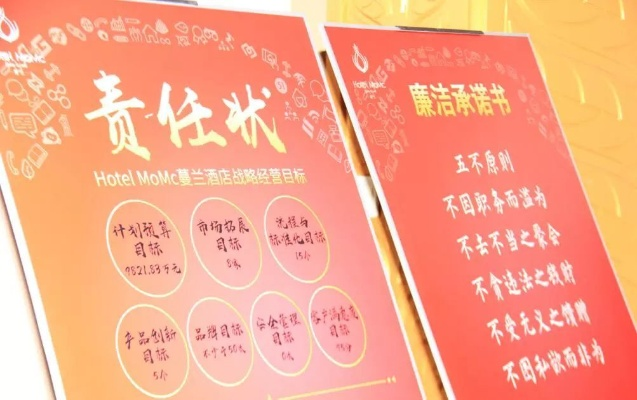 责任状
Hotel MoMc蔓兰酒店战略经营目标
计划预算
目标
9821.83万元
市场拓展
目标
8家
流程与
标准化目标
15个
产品创新
目标
5个
品牌目标
不少于50次
安全管理
目标
0次
客户满意度
目标
95分
Hotel MoMc
廉洁承诺书
五不原则
不因职务而滥为
不去不当之聚会
不贪违法之钱财
不受无义之馈赠
不因私欲而非为